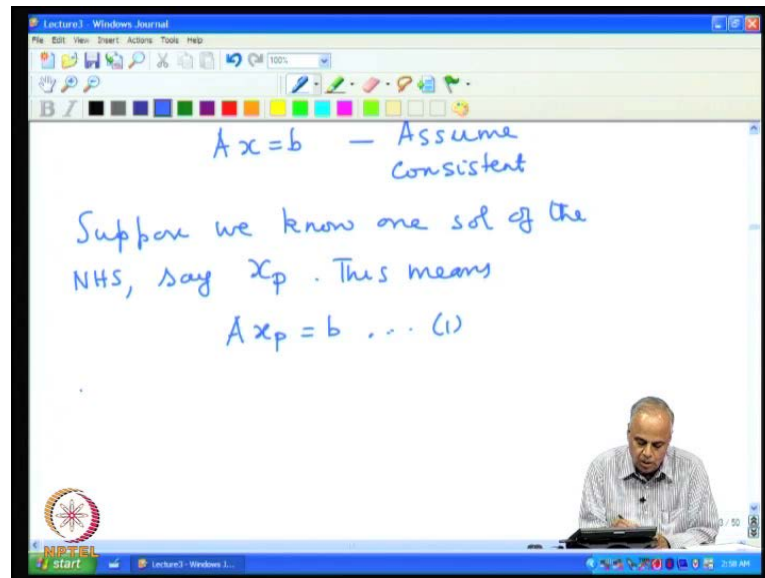 Lecture3 - Windows Journal
File Edit View Insert Actions Tools Help
100%
B I
Ax = b — Assume
Consistent
Suppose we know one sol of the
NHS, say xp . This means
A xp = b ... (1)
3 / 50
NPTEL
start Lecture3 - Windows J... 2:58 AM